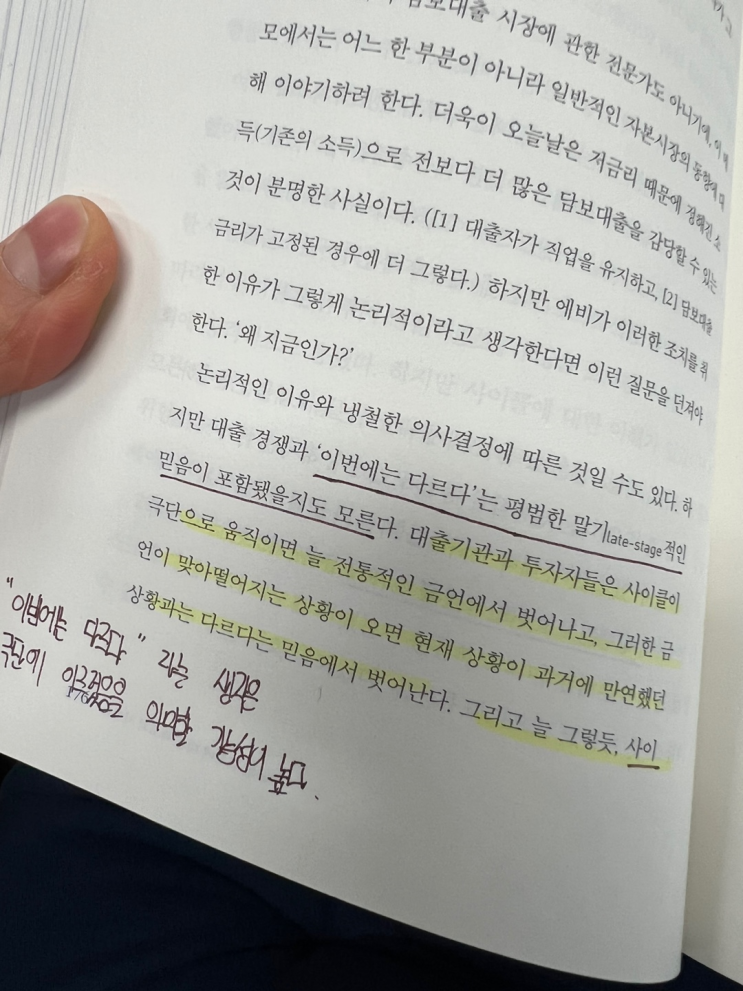 담보대출 시장에 관한 전문가도 아니기에, 이 메
모에서는 어느 한 부분이 아니라 일반적인 자본시장의 동향에 대
해 이야기하려 한다. 더욱이 오늘날은 저금리 때문에 정해진 소
득(기존의 소득)으로 전보다 더 많은 담보대출을 감당할 수 있는
것이 분명한 사실이다. ([1] 대출자가 직업을 유지하고, [2] 담보대출
금리가 고정된 경우에 더 그렇다.) 하지만 에비가 이러한 조치를 취
한 이유가 그렇게 논리적이라고 생각한다면 이런 질문을 던져야
한다. ‘왜 지금인가?’
논리적인 이유와 냉철한 의사결정에 따른 것일 수도 있다. 하
지만 대출 경쟁과 ‘이번에는 다르다’는 평범한 말기late-stage적인
믿음이 포함됐을지도 모른다. 대출기관과 투자자들은 사이클이
극단으로 움직이면 늘 전통적인 금언에서 벗어나고, 그러한 금
언이 맞아떨어지는 상황이 오면 현재 상황이 과거에 만연했던
상황과는 다르다는 믿음에서 벗어난다. 그리고 늘 그렇듯, 사이
"이번에는 다르다" 라는 생각은
극단에 이르렀음을 의미할 가능성이 높다.